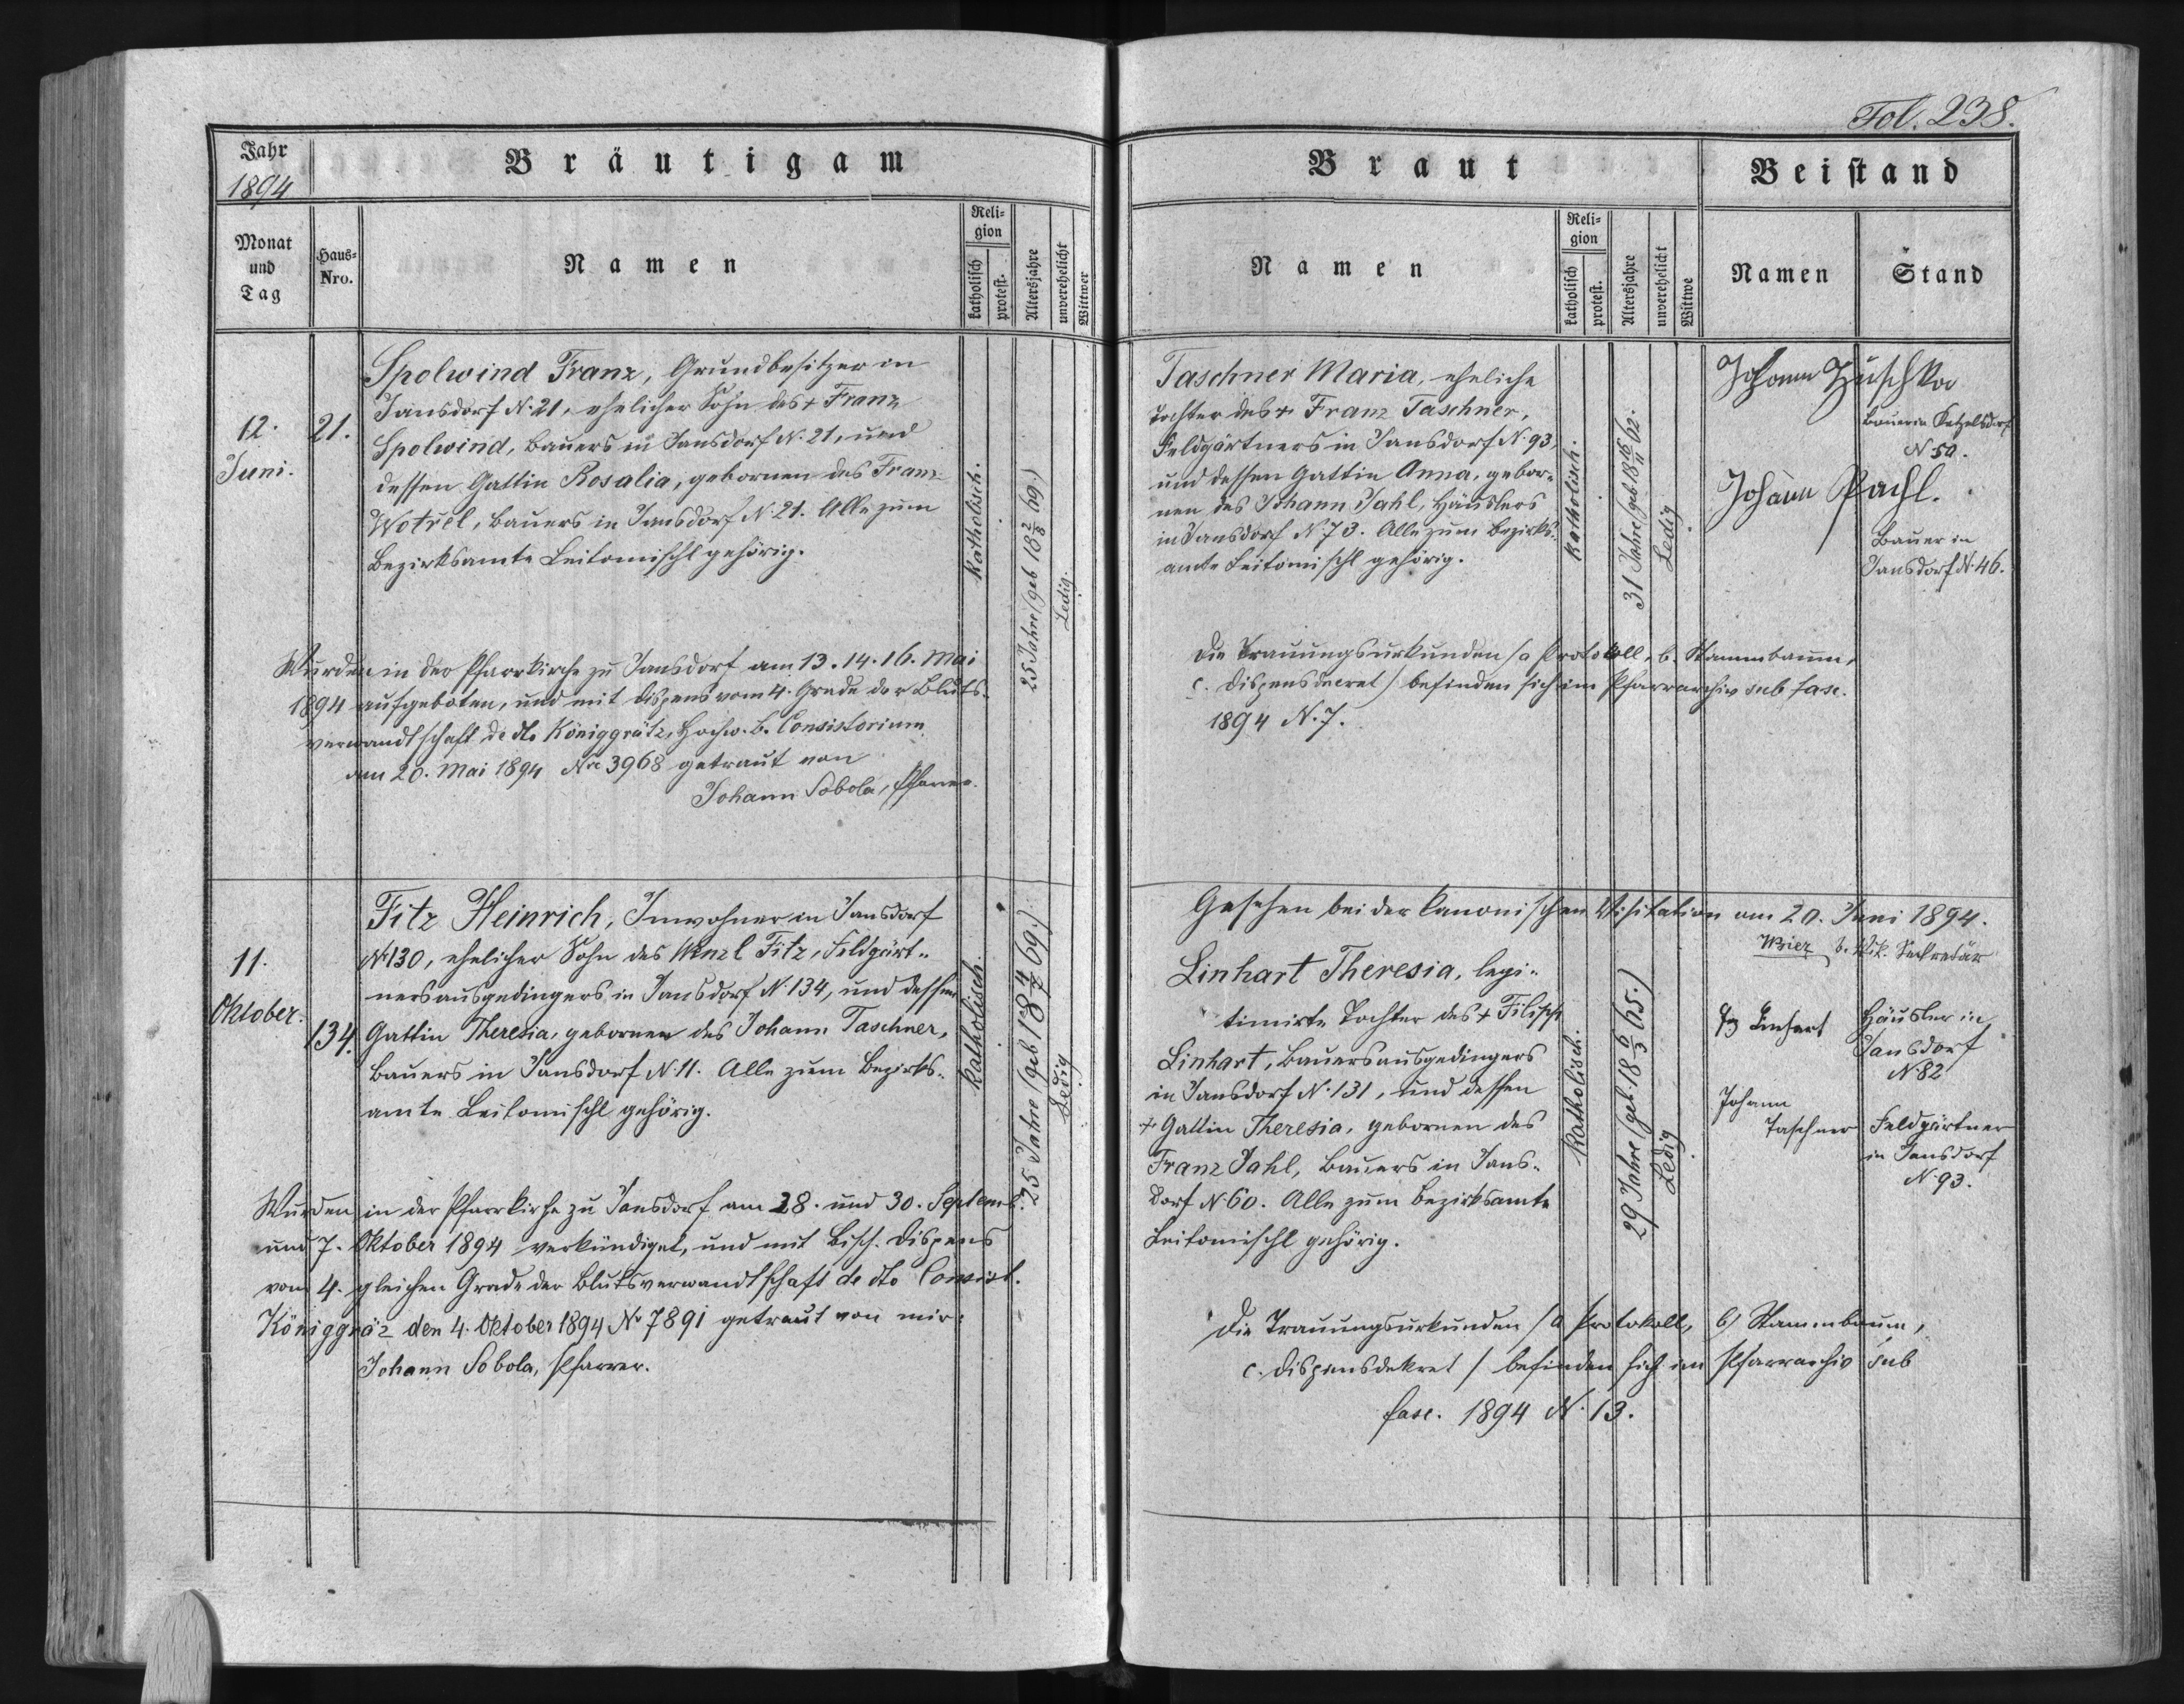 Fol. 238.
Jahr
1894
Bräutigam
Braut
Beistand
Monat
und
Tag
Haus-
Nro.
Namen
Reli-
gion
katholisch
protest.
Altersjahre
unverehelicht
Wittwer
Namen
Reli-
gion
katholisch
protest.
Altersjahre
unverehelicht
Wittwe
Namen
Stand
12.
Juni.
21.
Spolwind Franz, Grundbesitzer in
Jansdorf N. 21, ehelicher Sohn des + Franz
Spolwind, Bauers in Jansdorf N. 21, und
dessen Gattin Rosalia, gebornen des Franz
Wotřel, Bauers in Jansdorf N. 21. Alle zum
Bezirksamte Leitomischl gehörig.
Katholisch.
25 Jahre (geb. 18 2/8 69.)
Ledig.
Wurden in der Pfarrkirche zu Jansdorf am 13. 14. 16. Mai
1894 aufgeboten, und mit Dispens vom 4. Grade der Bluts-
verwandtschaft de dto Königgrätz, Hochw. b. Consistorium
am 20. Mai 1894 Nr. 3968 getraut von
Johann Sobola, Pfarrer.
Taschner Maria, eheliche
Tochter des + Franz Taschner,
Feldgärtners in Jansdorf N. 93,
und dessen Gattin Anna, gebor-
nen des Johann Jahl, Häuslers
in Jansdorf N. 73. Alle zum Bezirks-
amte Leitomischl gehörig.
Katholisch.
31 Jahre (geb. 18 16/11 62.
Ledig
Johann
Bauer in Ketzelsdorf
N 50.
Johann Pachl.
Bauer in
Jansdorf N. 46.
Die Trauungsurkunden /a Protokoll, b. Stammbaum,
c. Dispensdecret / befinden sich im Pfarrarchiv sub fasc.
1894 N. 7.
Gesehen bei der kanonischen Visitation am 20. Juni 1894.
b. Vik. Sekretär
11.
Oktober.
134.
Fitz Heinrich, Inwohner in Jansdorf
N 130, ehelicher Sohn des Wenzl Fitz, Feldgärt-
nersausgedingers in Jansdorf N. 134, und dessen
Gattin Theresia, gebornen des Johann Taschner,
Bauers in Jansdorf N. 11. Alle zum Bezirks-
amte Leitomischl gehörig.
Katholisch.
25 Jahre (geb. 18 4/7 69.)
Ledig
Wurden in der Pfarrkirche zu Jansdorf am 28. und 30. Septemb.
und 7. Oktober 1894 verkündiget, und mit Bisch. Dispens
vom 4. gleichen Grade der Blutsverwandtschaft de dto Consist.
Königgräz den 4. Oktober 1894 N. 7891 getraut von mir:
Johann Sobola, Pfarrer.
Linhart Theresia, legi-
timirte Tochter des + Filipp
Linhart, Bauersausgedingers
in Jansdorf N. 131, und dessen
+ Gattin Theresia, gebornen des
Franz Jahl, Bauers in Jans-
dorf N 60. Alle zum Bezirksamte
Leitomischl gehörig.
Katholisch.
29 Jahre (geb. 18 6/3 65.)
Ledig
Linhart
Häusler in
Jansdorf
N 82
Johann
Taschner
Feldgärtner
in Jansdorf
N. 93.
Die Trauungsurkunden /a Protokoll, b) Stammbaum,
c. Dispensdekret / befinden sich im Pfarrarchiv sub
fasc. 1894 N. 13.